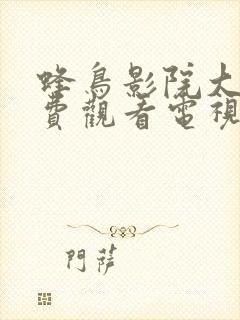 蜂鳥影院大
費觀看電視
門薩